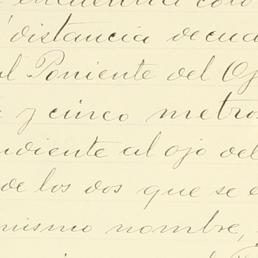 encuentra colo
distancia de cua
al Poniente del Oj
y cinco metros
ndiente al ojo del
de los dos que se e
mismo nombre,